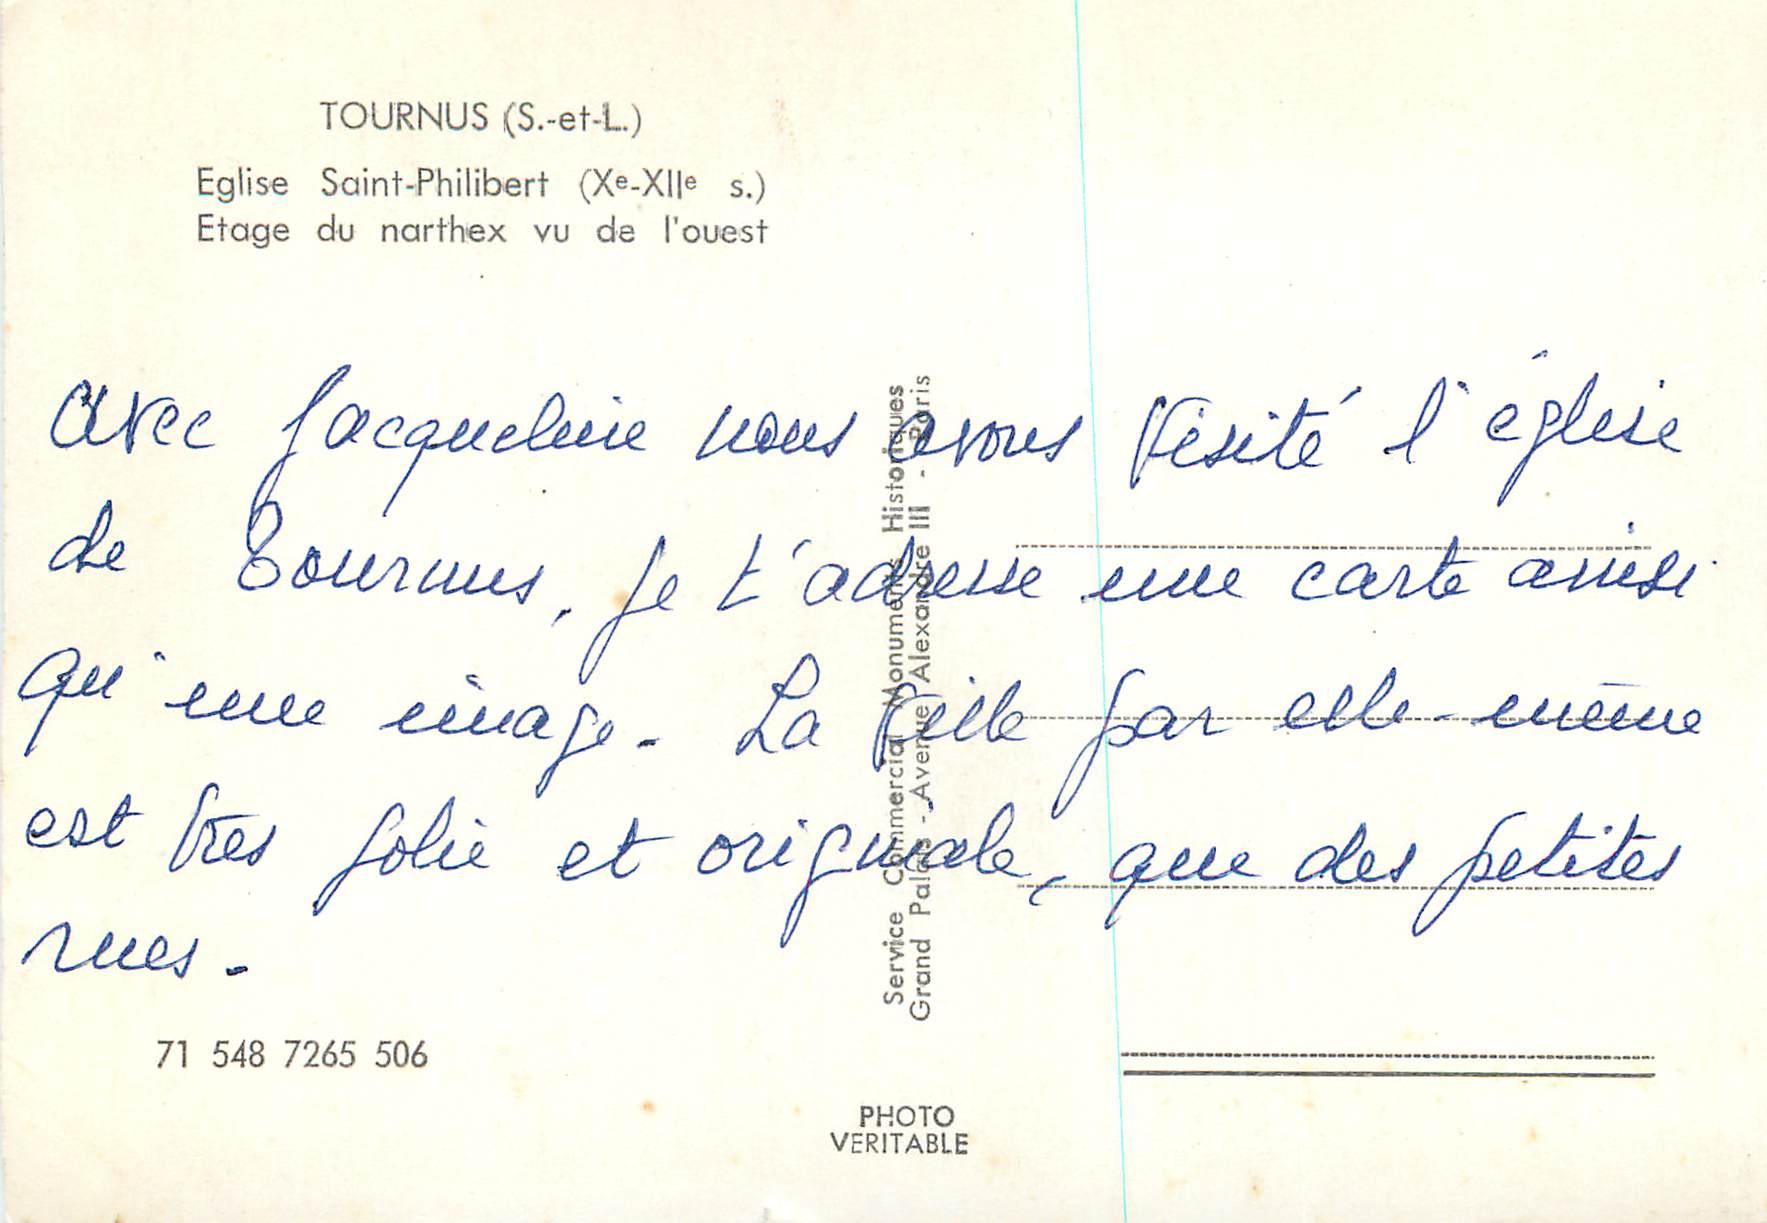 TOURNUS (S.-et-L.)
Eglise Saint-Philibert (Xe-XIIe s.)
Etage du narthex vu de l'ouest
Avec Jacqueline nous avons visité l'église
de Tournus, je t'adresse une carte ainsi
qu'une image. La ville par elle-même
est très jolie et originale, que des petites
rues.
Service Commercial Monuments Historiques
Grand Palais - Avenue Alexandre III - Paris
71 548 7265 506
PHOTO
VERITABLE